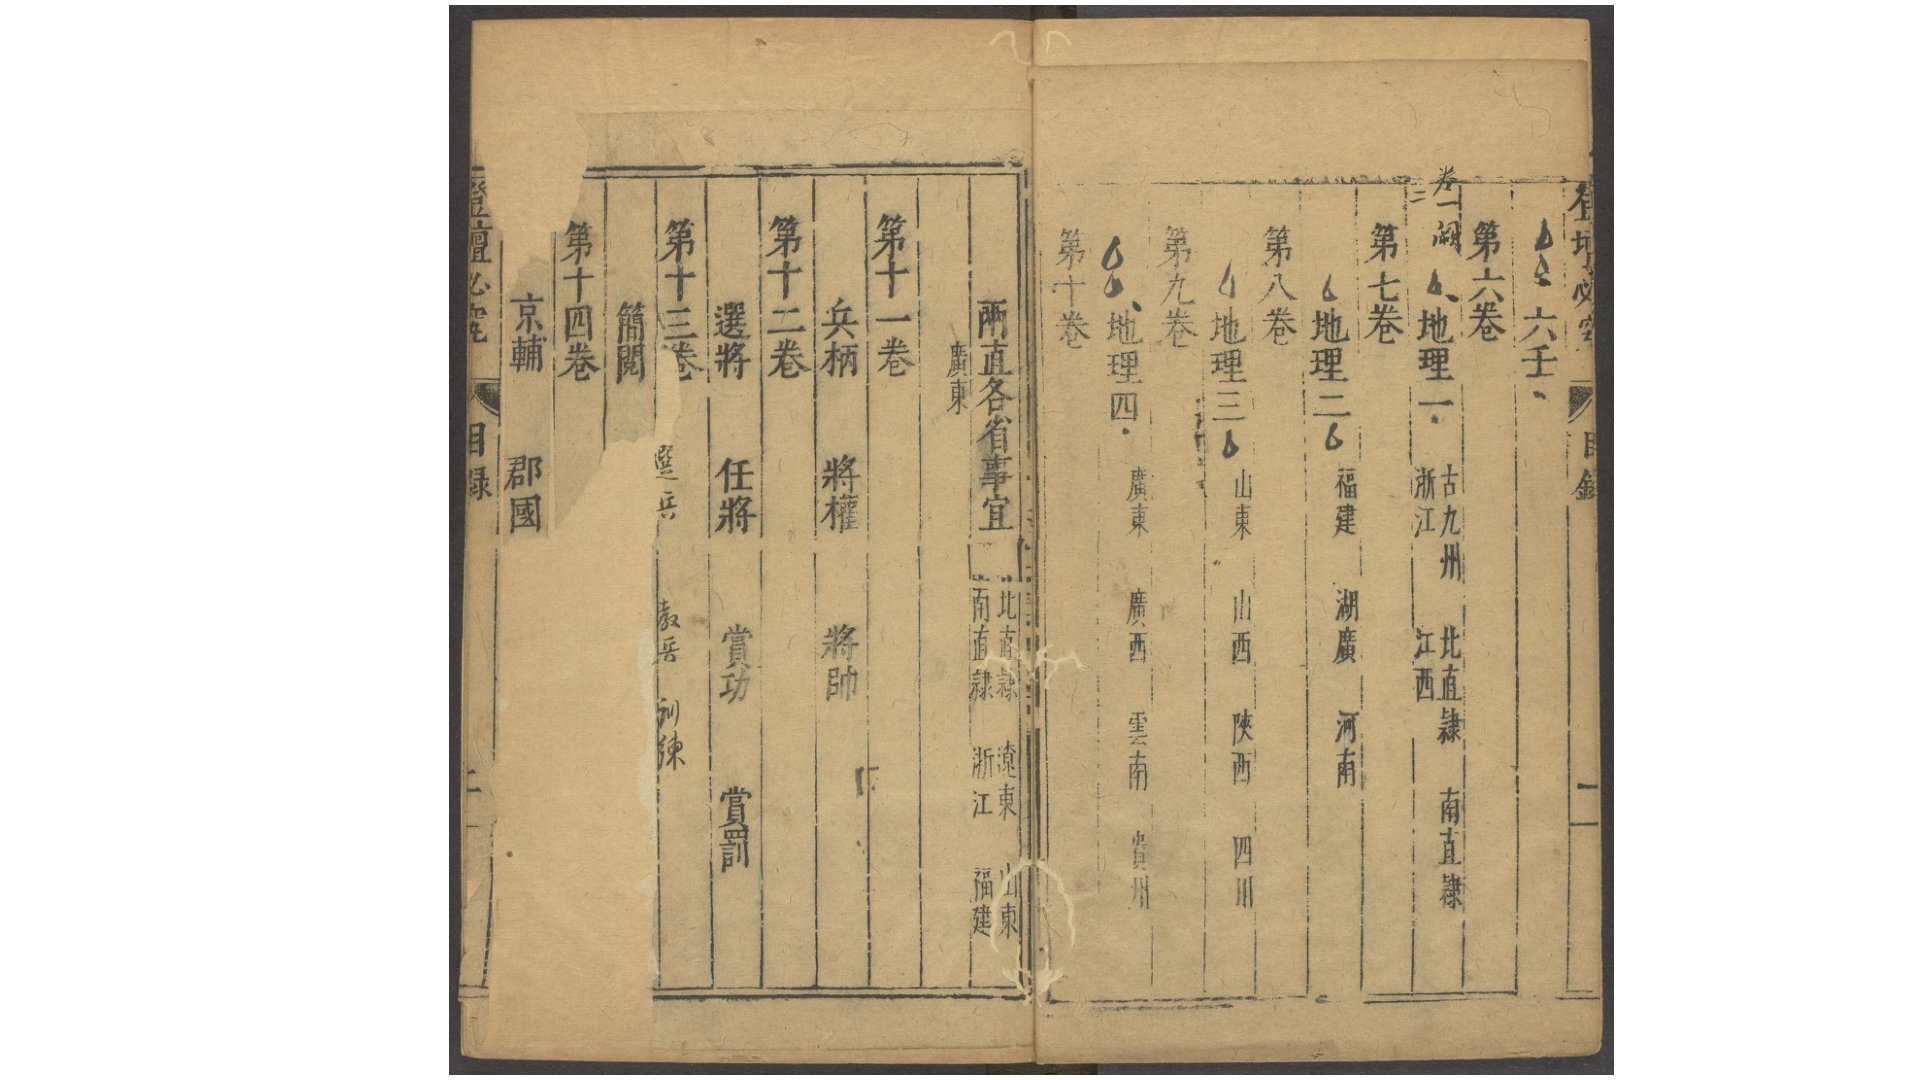 登壇必究 目錄 二
六壬
第六卷
卷一闕
二
地理一 古九州 北直隸 南直隸
浙江 江西
第七卷
地理二 福建 湖廣 河南
第八卷
地理三 山東 山西 陝西 四川
第九卷
地理四 廣東 廣西 雲南 貴州
第十卷
兩直各省事宜 北直隸 遼東 山東
南直隸 浙江 福建
廣東
第十一卷
兵柄 將權 將帥
第十二卷
選將 任將 賞功 賞罰
第十三卷
選兵 教兵 訓練
簡閱
第十四卷
京輔 郡國
登壇必究 目錄 二